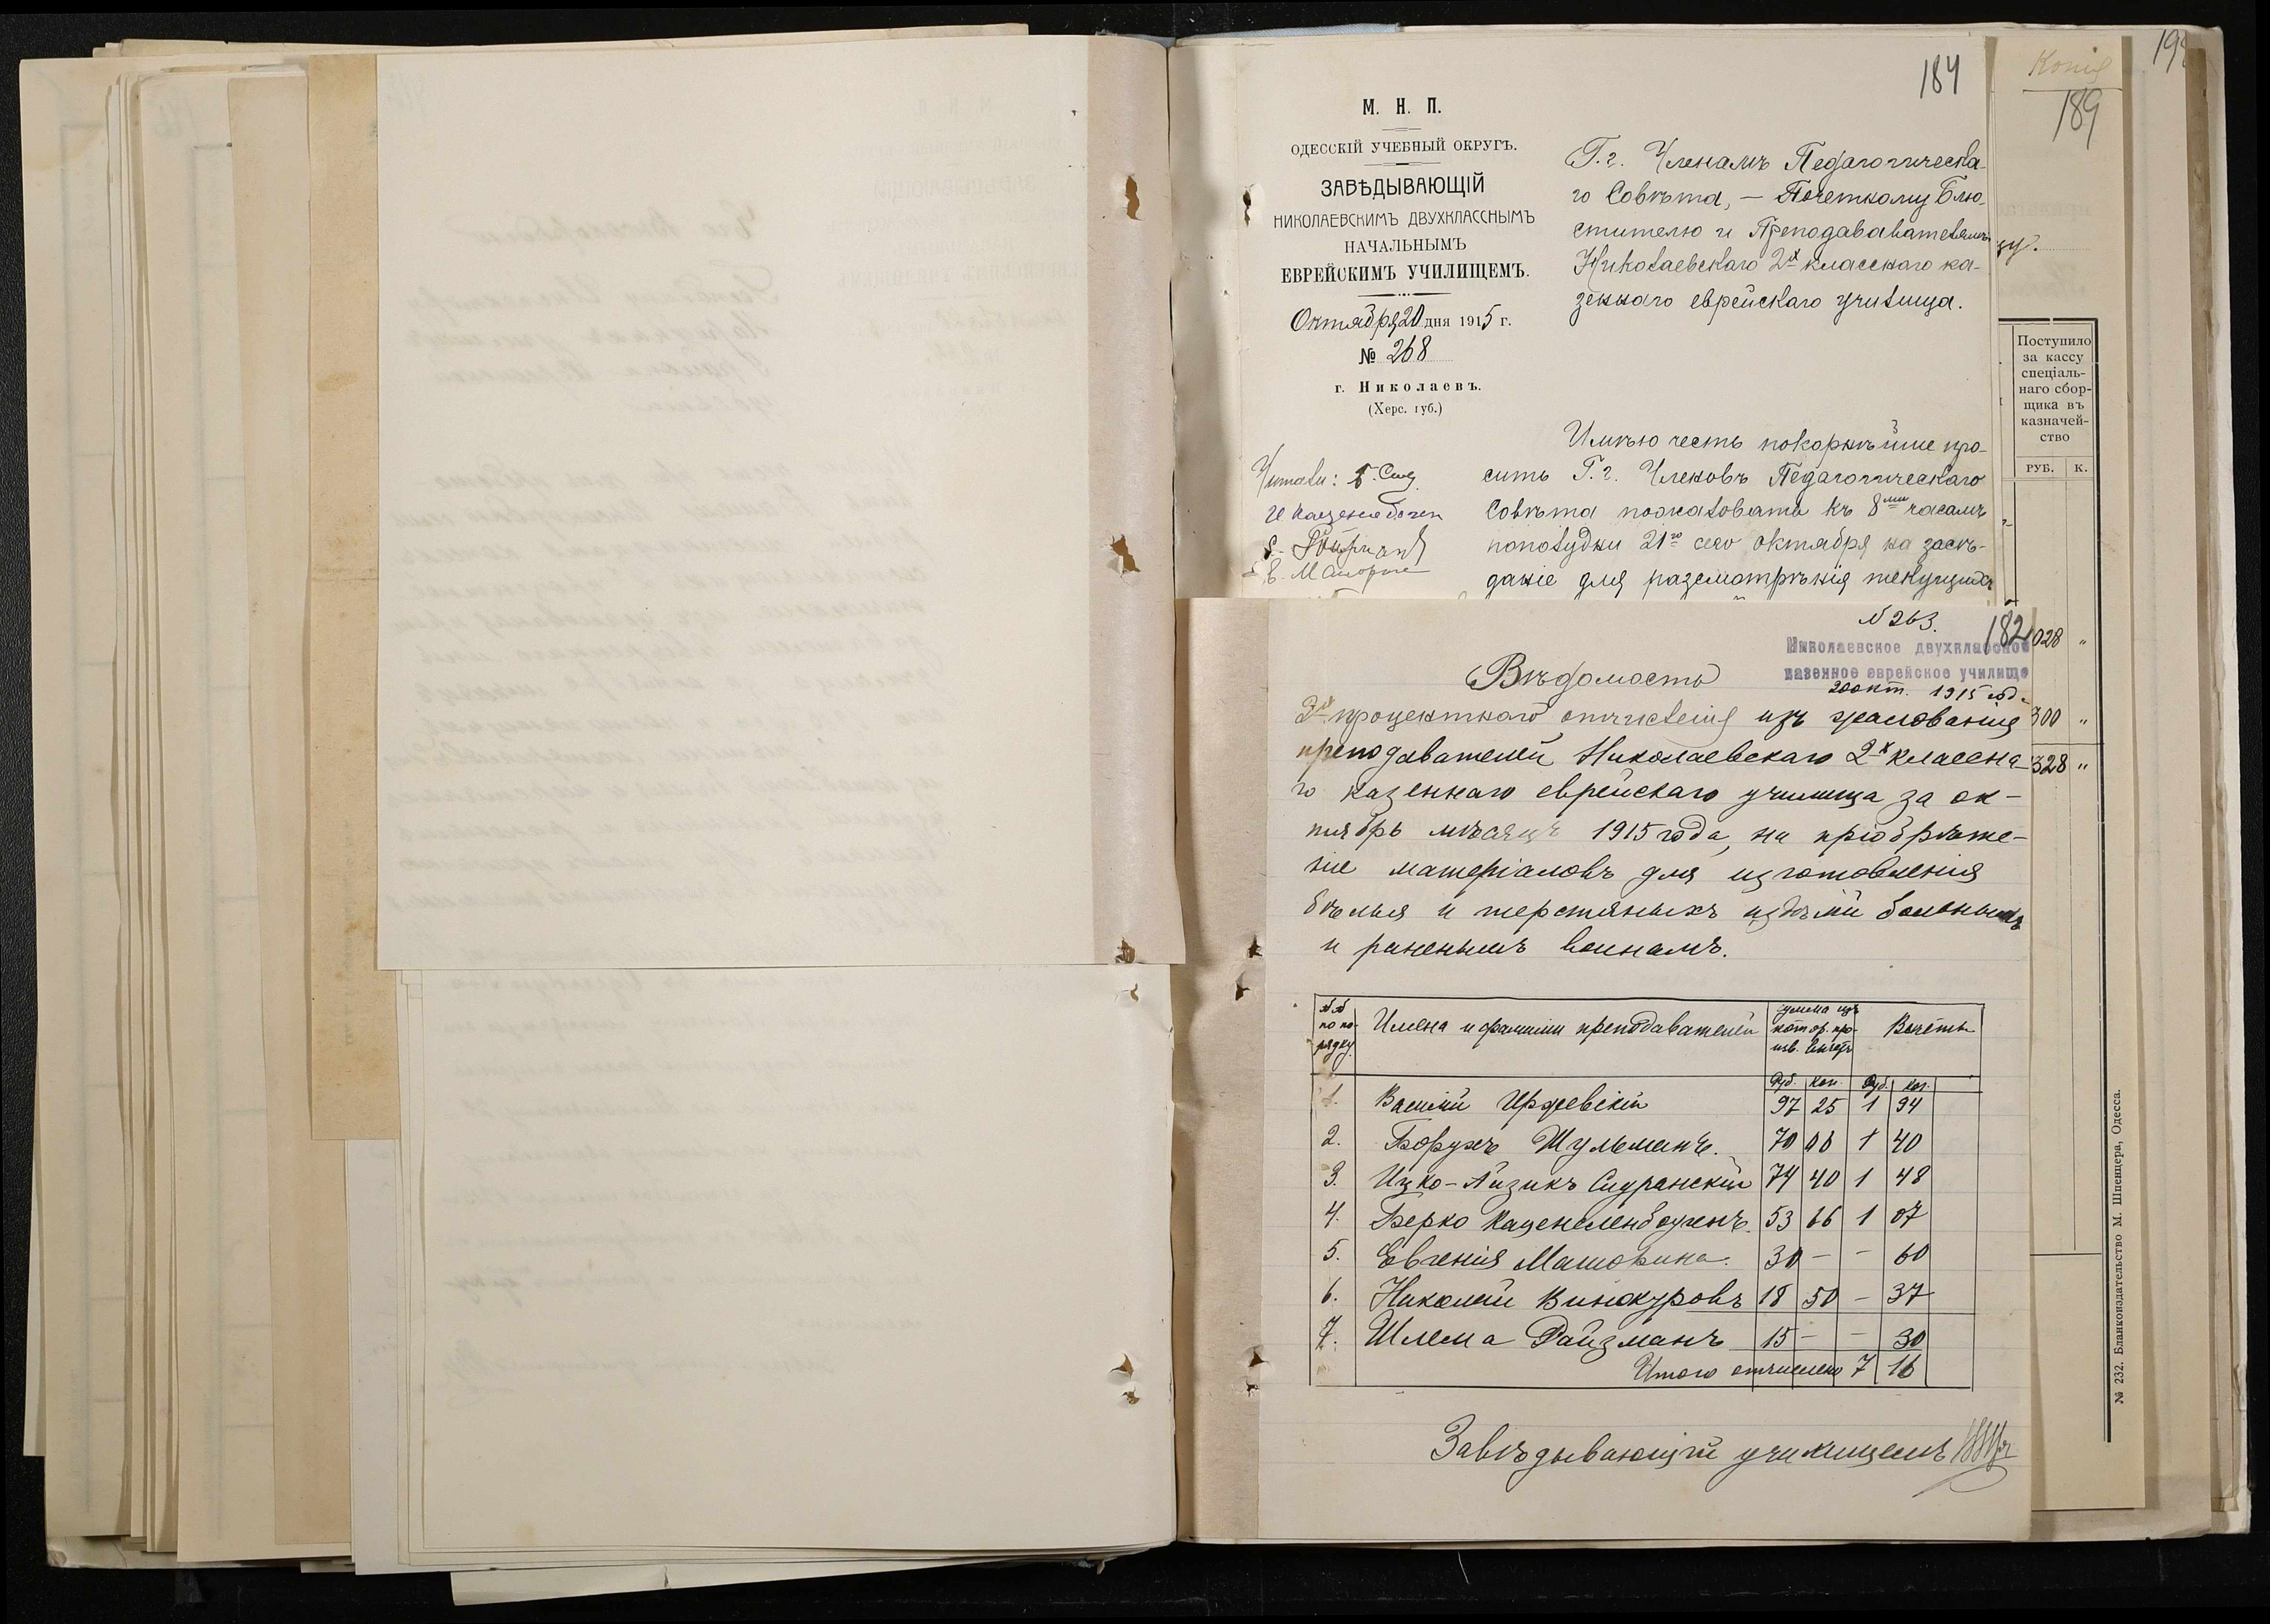 184
М. Н. П.
ОДЕССКІЙ УЧЕБНЫЙ ОКРУГЪ.
ЗАВѢДЫВАЮЩІЙ
НИКОЛАЕВСКИМЪ ДВУХКЛАССНЫМЪ
НАЧАЛЬНЫМЪ
ЕВРЕЙСКИМЪ УЧИЛИЩЕМЪ.
Октября 20 дня 1915 г.
№ 268
г. Николаевъ.
(Херс. губ.)
Г.г. Членамъ Педагогическа-
го Совѣта, — Почетному Блю-
стителю и Преподавателямъ
Николаевскаго 2х класснаго ка-
зеннаго еврейскаго училища.
Имѣю честь покорнѣйше про-
сить Г.г. Членовъ Педагогическаго
Совѣта пожаловать къ 8ми часамъ
пополудни 21го сего октября на засѣ-
даніе для разсмотрѣнія текущихъ
Читали:
Копія
189
Поступило
за кассу
спеціаль-
наго сбор-
щика въ
казначей-
ство
РУБ. К.
028 "
300 "
328 "
№ 232. Бланкоиздательство М. Шпенцера, Одесса.
№ 263.
182
Николаевское двухклассное
казенное еврейское училище
20 окт. 1915 год.
Вѣдомость
процентнаго отчисленія изъ жалованія
преподавателей Николаевскаго 2х классна-
го казеннаго еврейскаго училища за ок-
тябрь мѣсяцъ 1915 года, на пріобрѣте-
ніе матеріаловъ для изготовленія
бѣлья и шерстяныхъ издѣлій больнымъ
и раненымъ воинамъ.
№№ по по-рядку Имена и фамиліи преподавателей Сумма изъ котор. про-изв. вычетъ Вычеты
Руб. Коп. Руб. Коп.
1. Василій 97 25 1 94
2. Борухъ Шульманъ. 70 08 1 40
3. Ицко-Айзикъ Сидранскій 74 40 1 48
4. Берко Каценеленбогенъ. 53 66 1 07
5. Евгенія Машорина. 30 — — 60
6. Николай Винокуровъ 18 50 — 37
7. Шлема Райзманъ 15 — — 30
Итого отчислено 7 16
Завѣдывающій училищемъ